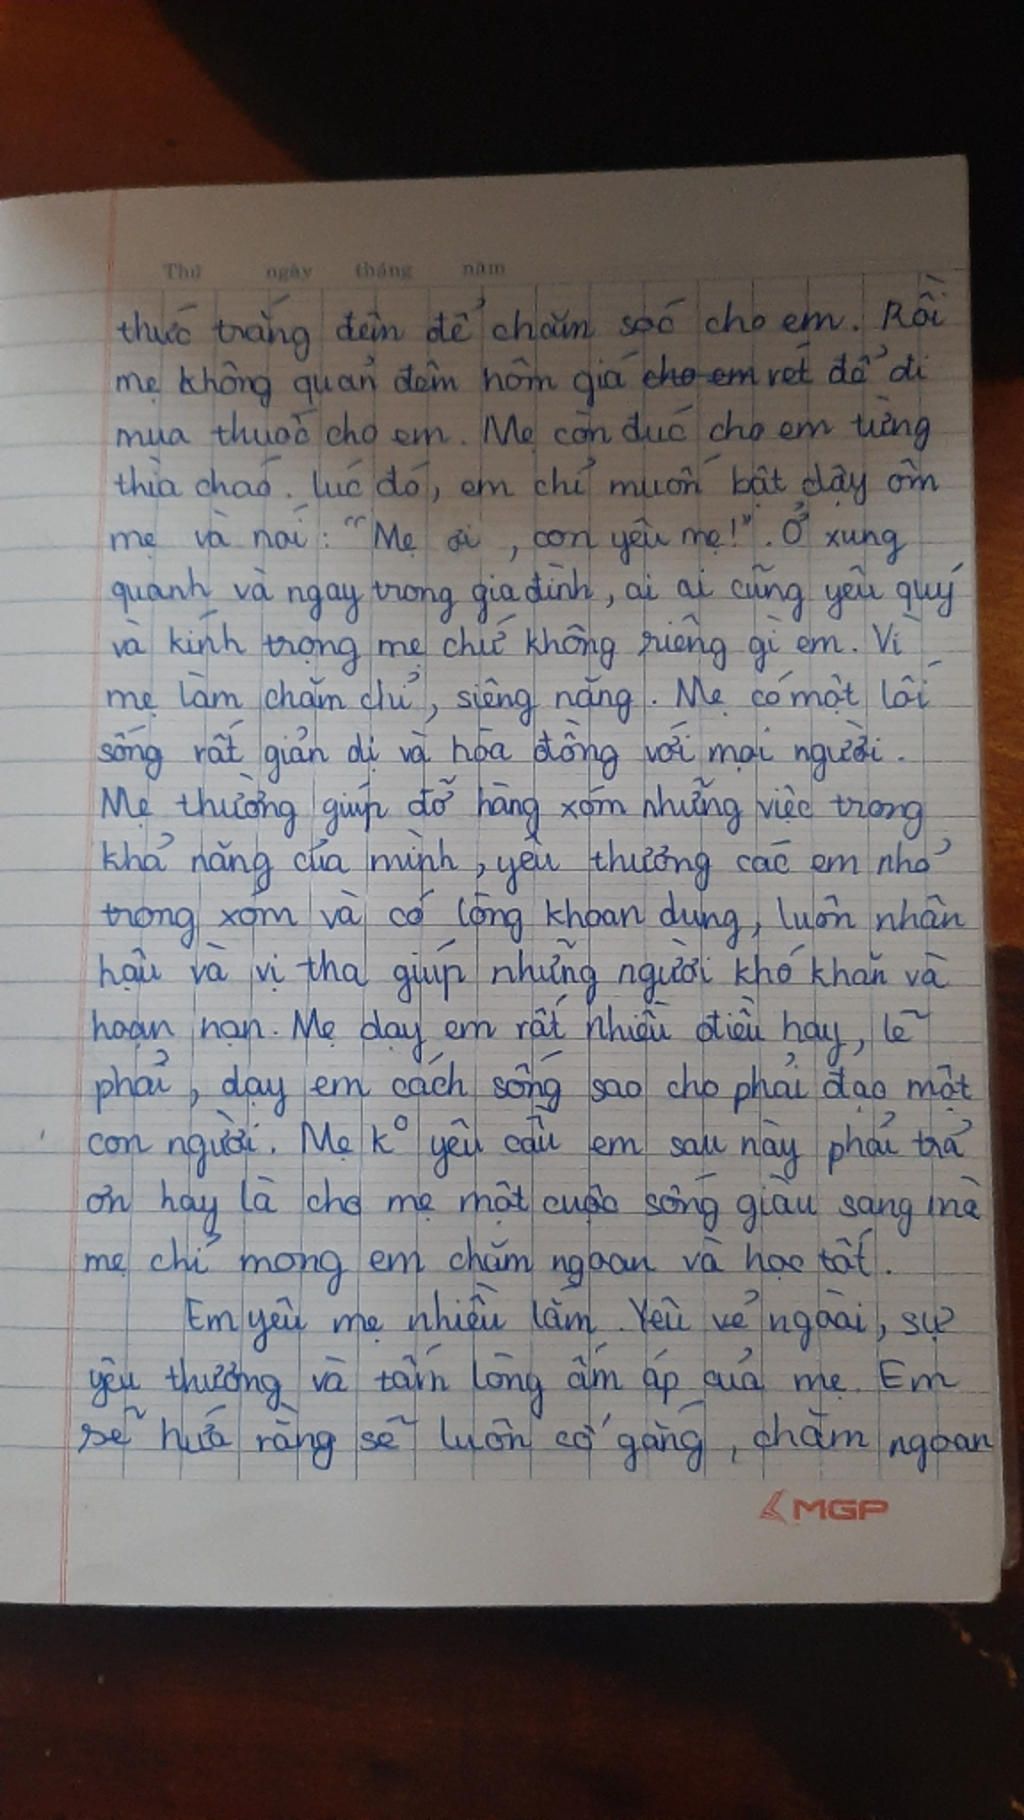 Thứ ngày tháng năm
thức trắng đêm để chăm sóc cho em. Rồi
mẹ không quản đêm hôm giá cho em rét để đi
mua thuốc cho em. Mẹ còn đúc cho em từng
thìa cháo. lúc đó, em chỉ muốn bật dậy ôm
mẹ và nói: "Mẹ ơi, con yêu mẹ!". Ở xung
quanh và ngay trong gia đình, ai ai cũng yêu quý
và kính trọng mẹ chứ không riêng gì em. Vì
mẹ làm chăm chỉ, siêng năng. Mẹ có một lối
sống rất giản dị và hòa đồng với mọi người.
Mẹ thường giúp đỡ hàng xóm những việc trong
khả năng của mình, yêu thương các em nhỏ
trong xóm và có lòng khoan dung, luôn nhân
hậu và vị tha giúp những người khó khăn và
hoạn nạn. Mẹ dạy em rất nhiều điều hay, lẽ
phải, dạy em cách sống sao cho phải đạo một
con người. Mẹ k° yêu cầu em sau này phải trả
ơn hay là cho mẹ một cuộc sống giàu sang mà
mẹ chỉ mong em chăm ngoan và học tốt.
Em yêu mẹ nhiều lắm. Yêu vẻ ngoài, sự
yêu thương và tấm lòng ấm áp của mẹ. Em
sẽ hứa rằng sẽ luôn cố gắng, chăm ngoan
MGP